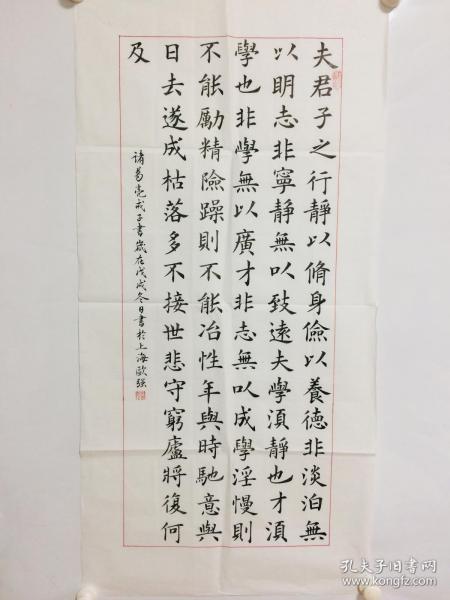 夫君子之行靜以脩身儉以養德非淡泊無
以明志非寧静無以致遠夫學須靜也才須
學也非學無以廣才非志無以成學淫慢則
不能勵精險躁則不能冶性年與時馳意與
日去遂成枯落多不接世悲守窮廬將復何
及
诸葛亮戒子書歲在戊戌冬日書於上海歐强
孔夫子旧书网
www.kongfz.com